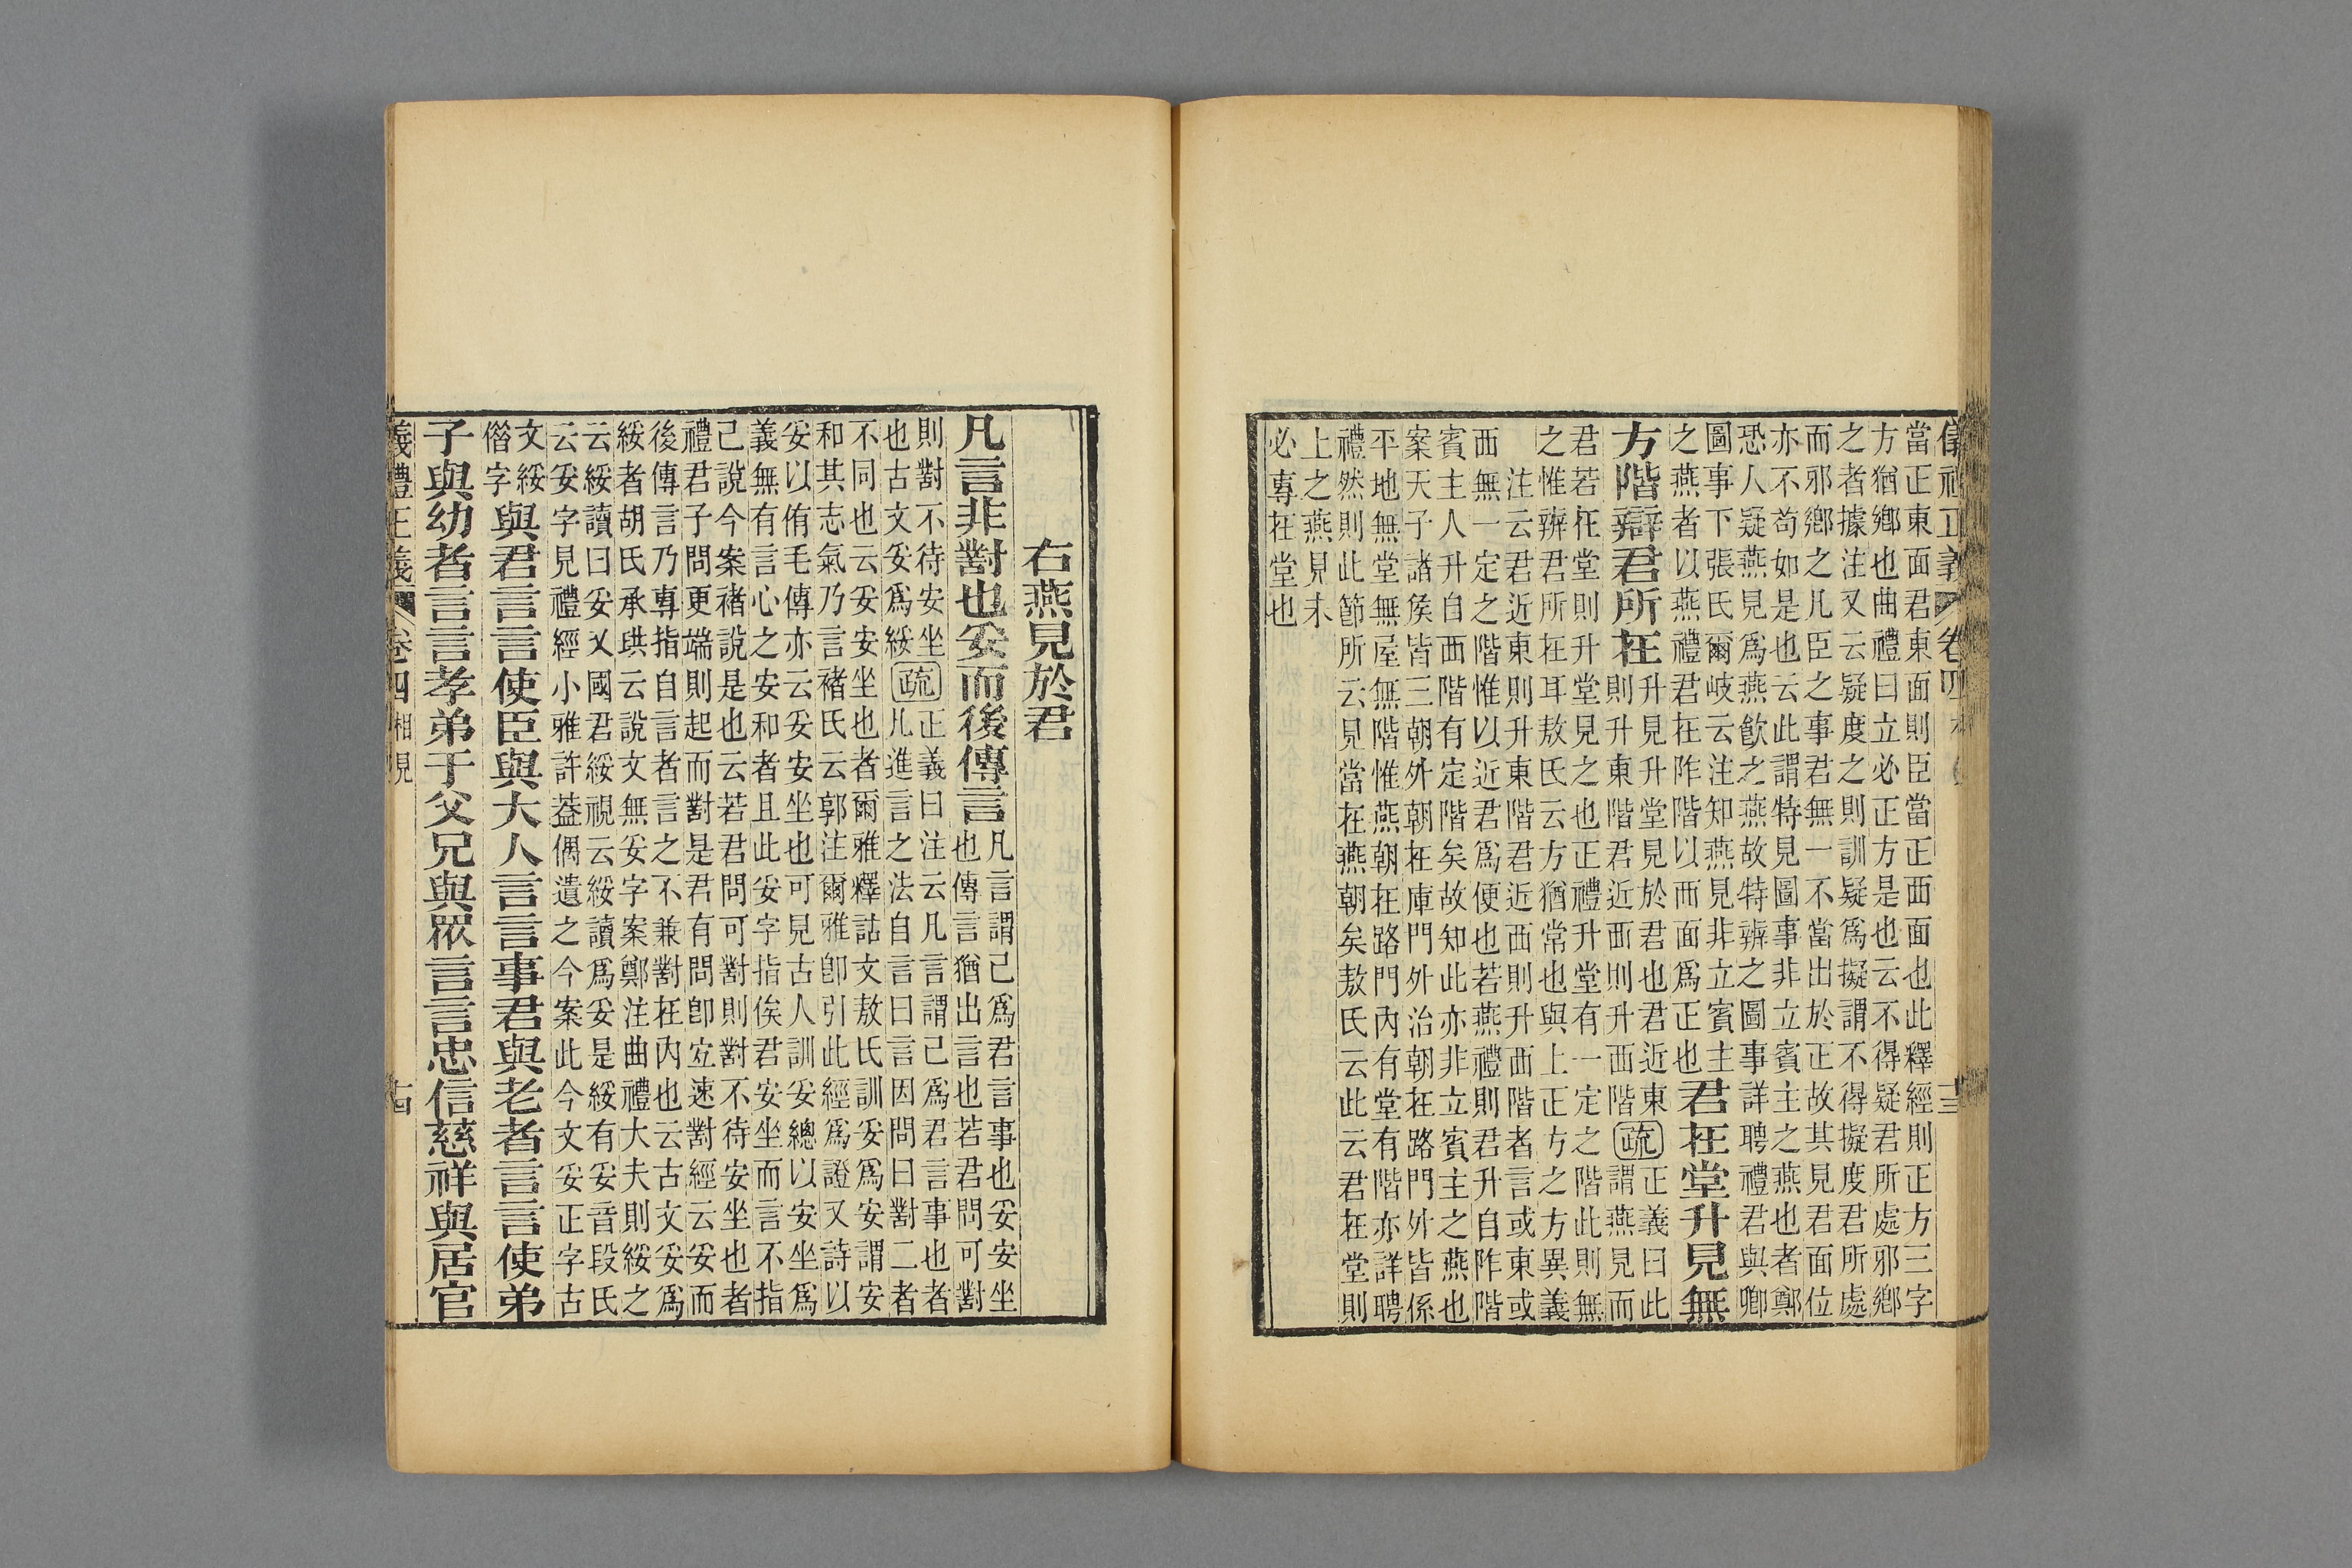 正義 卷四 十三
當正東面君東面則臣當正西面也此釋經則正方三字
方猶鄉也曲禮曰立必正方是也云不得疑君所處邪鄉
之者據注又云疑度之則訓疑爲擬謂不得擬度君所處
而邪鄉之凡臣之事君無一不當出於正故其見君面位
亦不苟如是也云此謂特見圖事非立賓主之燕也者鄭
恐人疑燕見爲燕飲之燕故特辨之圖事詳聘禮君與卿
圖事下張氏爾岐云注知燕見非立賓主
之燕者以燕禮君在阼階以西面爲正也
君在堂升見無
方階辯君所在
升見升堂見於君也君近東
則升東階君近西則升西階
疏
正義曰此
謂燕見而
君若在堂則升堂見之也正禮升堂有一定之階此則無
之惟辨君所在耳敖氏云方猶常也與上正方之方異義
注云君近東則升東階君近西則升西階者言或東或
西無一定之階惟以近君爲便也若燕禮則君升自阼階
賓主人升自西階有定階矣故知此亦非立賓主之燕也
案天子諸侯皆三朝外朝在庫門外治朝在路門外皆係
平地無堂無屋無階惟燕朝在路門內有堂有階亦詳聘
禮然則此節所云見當在燕朝矣敖氏云此云君在堂則
上之燕見未
必專在堂也
右燕見於君
凡言非對也妥而後傳言
凡言謂己爲君言事也妥安坐
也傳言猶出言也若君問可對
則對不待安坐
也古文妥爲綏
疏
正義曰注云凡言謂己爲君言事也者
凡進言之法自言曰言因問曰對二者
不同也云妥安坐也者爾雅釋詁文敖氏訓妥爲安謂安
和其志氣乃言褚氏云郭注爾雅卽引此經爲證又詩以
妥以侑毛傳亦云妥安坐也可見古人訓妥總以安坐爲
義無有言心之安和者且此妥字指俟君安坐而言不指
己說今案褚說是也云若君問可對則對不待安坐也者
禮君子問更端則起而對是君有問卽宐速對經云妥而
後傳言乃專指自言者言之不兼對在內也云古文妥爲
綏者胡氏承珙云說文無妥字案鄭注曲禮大夫則綏之
云綏讀曰妥又國君綏視云綏讀爲妥是綏有妥音段氏
云妥字見禮經小雅許葢偶遺之今案此今文妥正字古
文綏
借字
與君言言使臣與大人言言事君與老者言言使弟
子與幼者言言孝弟于父兄與眾言言忠信慈祥與居官
儀禮正義 卷四 相見 十四